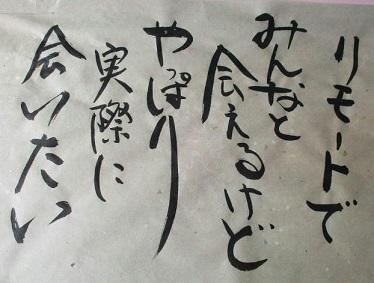 リモートで
みんなと
会えるけど
やっぱり
実際に
会いたい